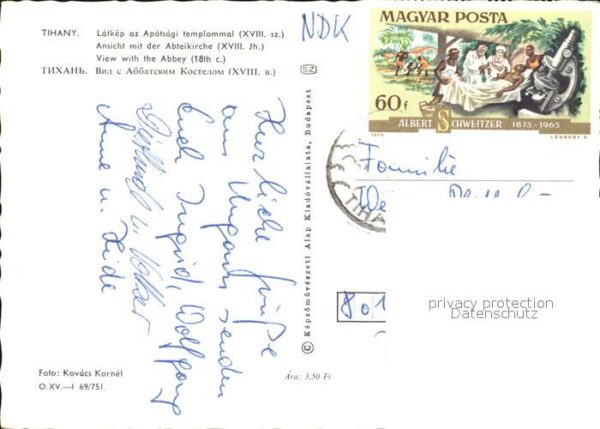 TIHANY. Látkép az Apátsági templommal (XVIII. sz.)
Ansicht mit der Abteikirche (XVIII. Jh.)
View with the Abbey (18th c.)
ТИХАНЬ. Вид с Аббатским Костелом (XVIII. в.)
SZ
NDK
MAGYAR POSTA
60f
ALBERT SCHWEITZER 1875-1965
1975
LÉGRÁDY S.
TIHA
Familie
801
privacy protection
Datenschutz
Herzliche Grüße
aus Ungarn senden
Euch Ingrid, Wolfgang
Volker
Anne u. Heide
© Képzőművészeti Alap Kiadóvállalata, Budapest
Foto: Kovács Kornél
O.XV.—I 69/751.
Ára: 3,50 Ft